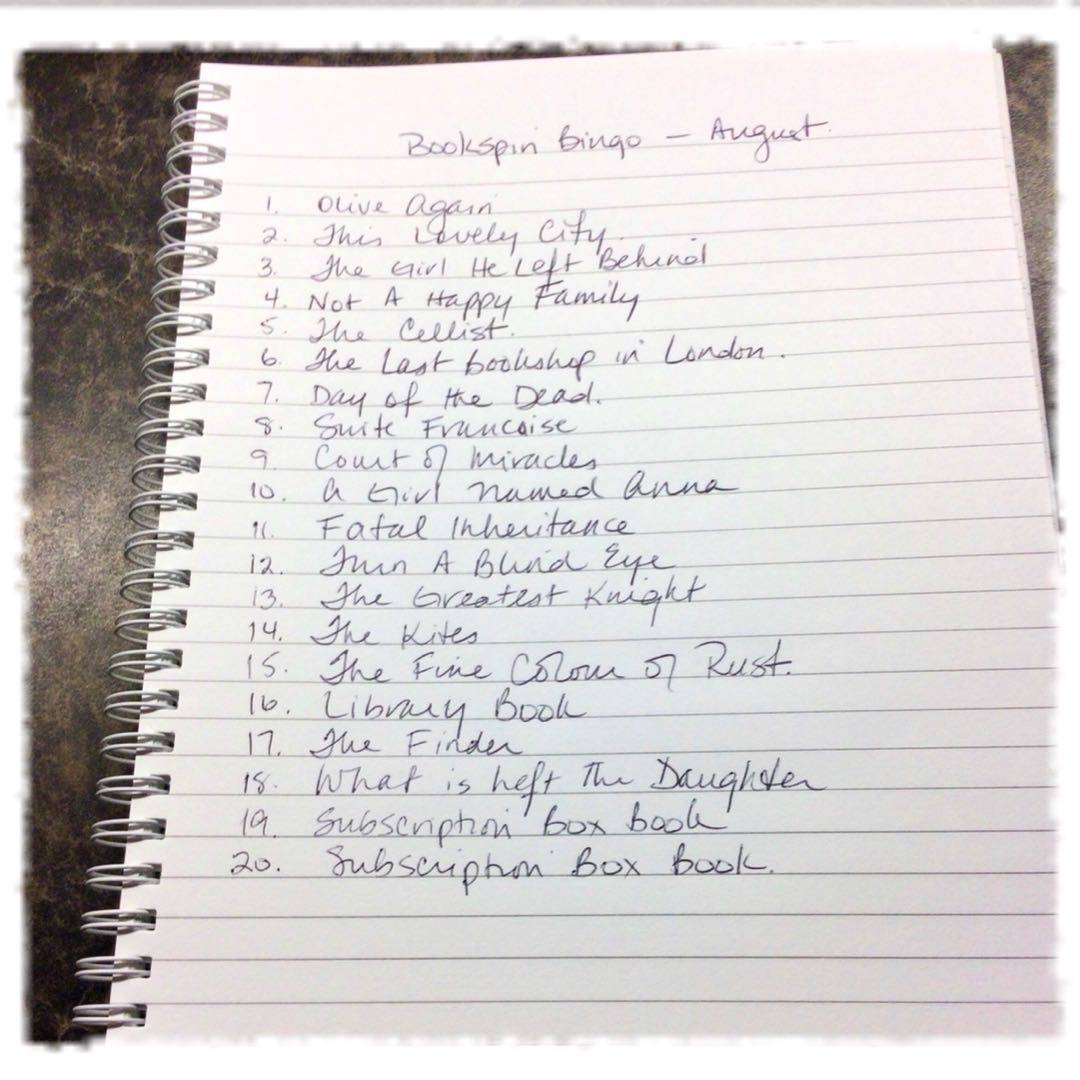 Bookspin Bingo - August.
1. Olive Again
2. This Lovely City.
3. The Girl He Left Behind
4. Not A Happy Family
5. The Cellist.
6. The Last bookshop in London.
7. Day of the Dead.
8. Suite Francaise
9. Court of Miracles
10. A Girl Named Anna
11. Fatal Inheritance
12. Turn A Blind Eye
13. The Greatest Knight
14. The Kites
15. The Fine Colour of Rust.
16. Library Book
17. The Finder
18. What is Left The Daughter
19. Subscription box book
20. Subscription Box Book.